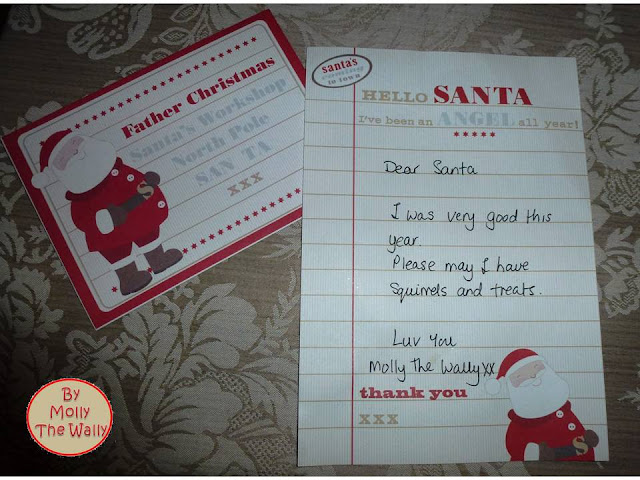 Father Christmas
Santa's Workshop
North Pole
SAN TA
xxx
santa's
coming
to town
HELLO SANTA
I've been an ANGEL all year!
Dear Santa
I was very good this
year.
Please may I have
Squirrels and treats.
Luv You
Molly The Wally xx
thank you
xxx
By
Molly
The Wally